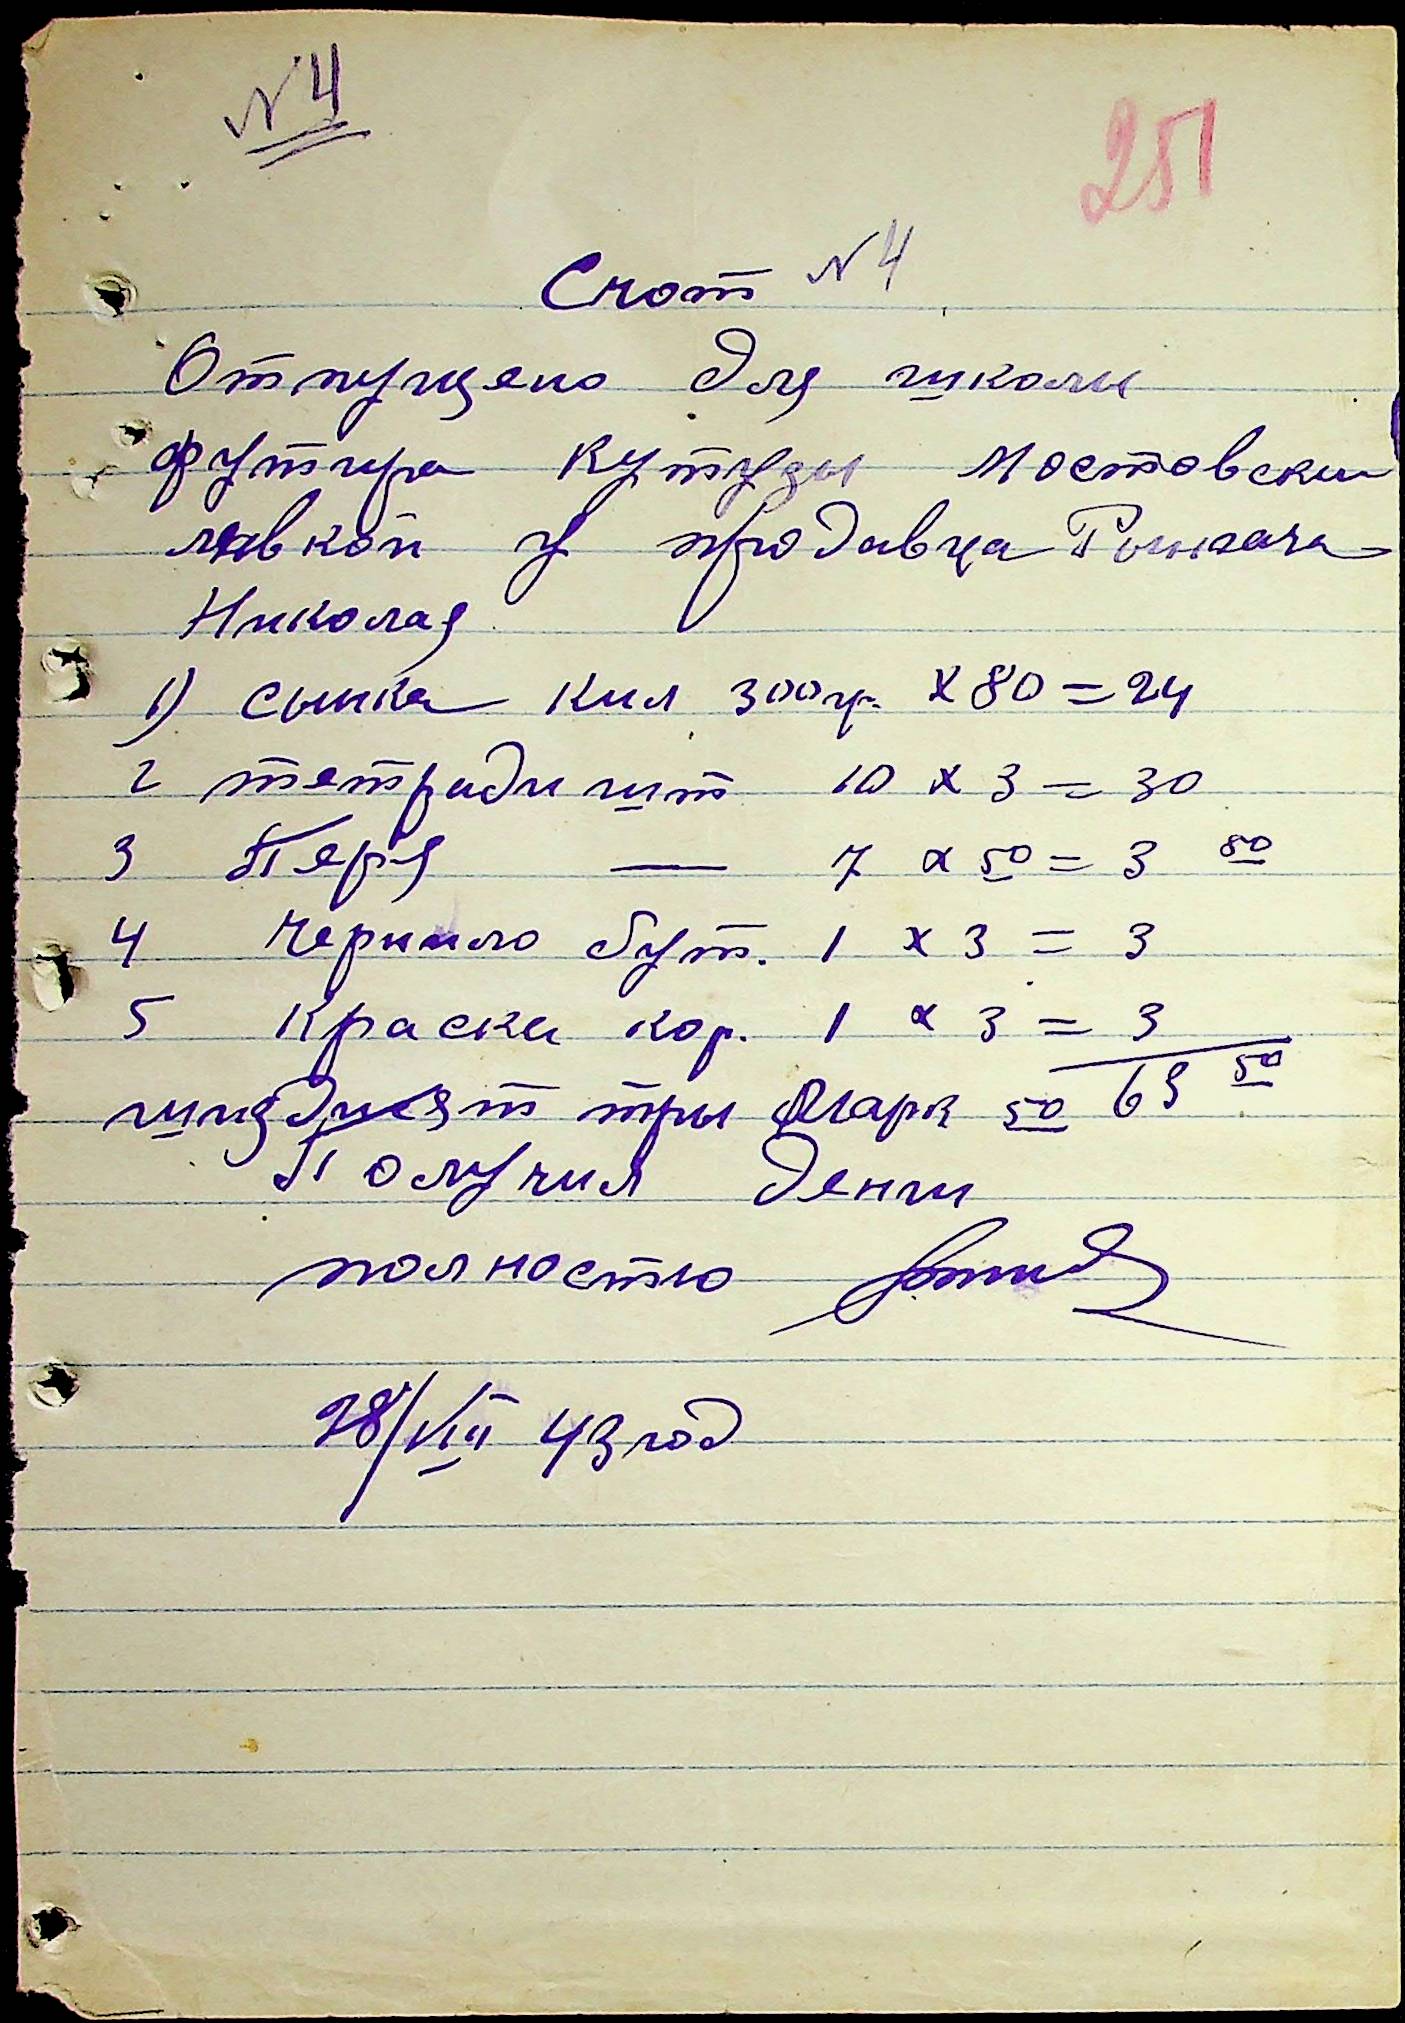 № 4
251
Счот № 4
Отпущено для школи
футура Кутузы Мостовски
лавкой у продавца
Николая
1) сынка кил 300 гр. х 80 = 24
2 тетради шт 10 х 3 = 30
3 Перя — 7 х 50 = 3 50
4 Чернило бут. 1 х 3 = 3
5 Краска кор. 1 х 3 = 3
63 50
шиздисят три марк 50
Получил денги
полностю
28/VIII 43 год